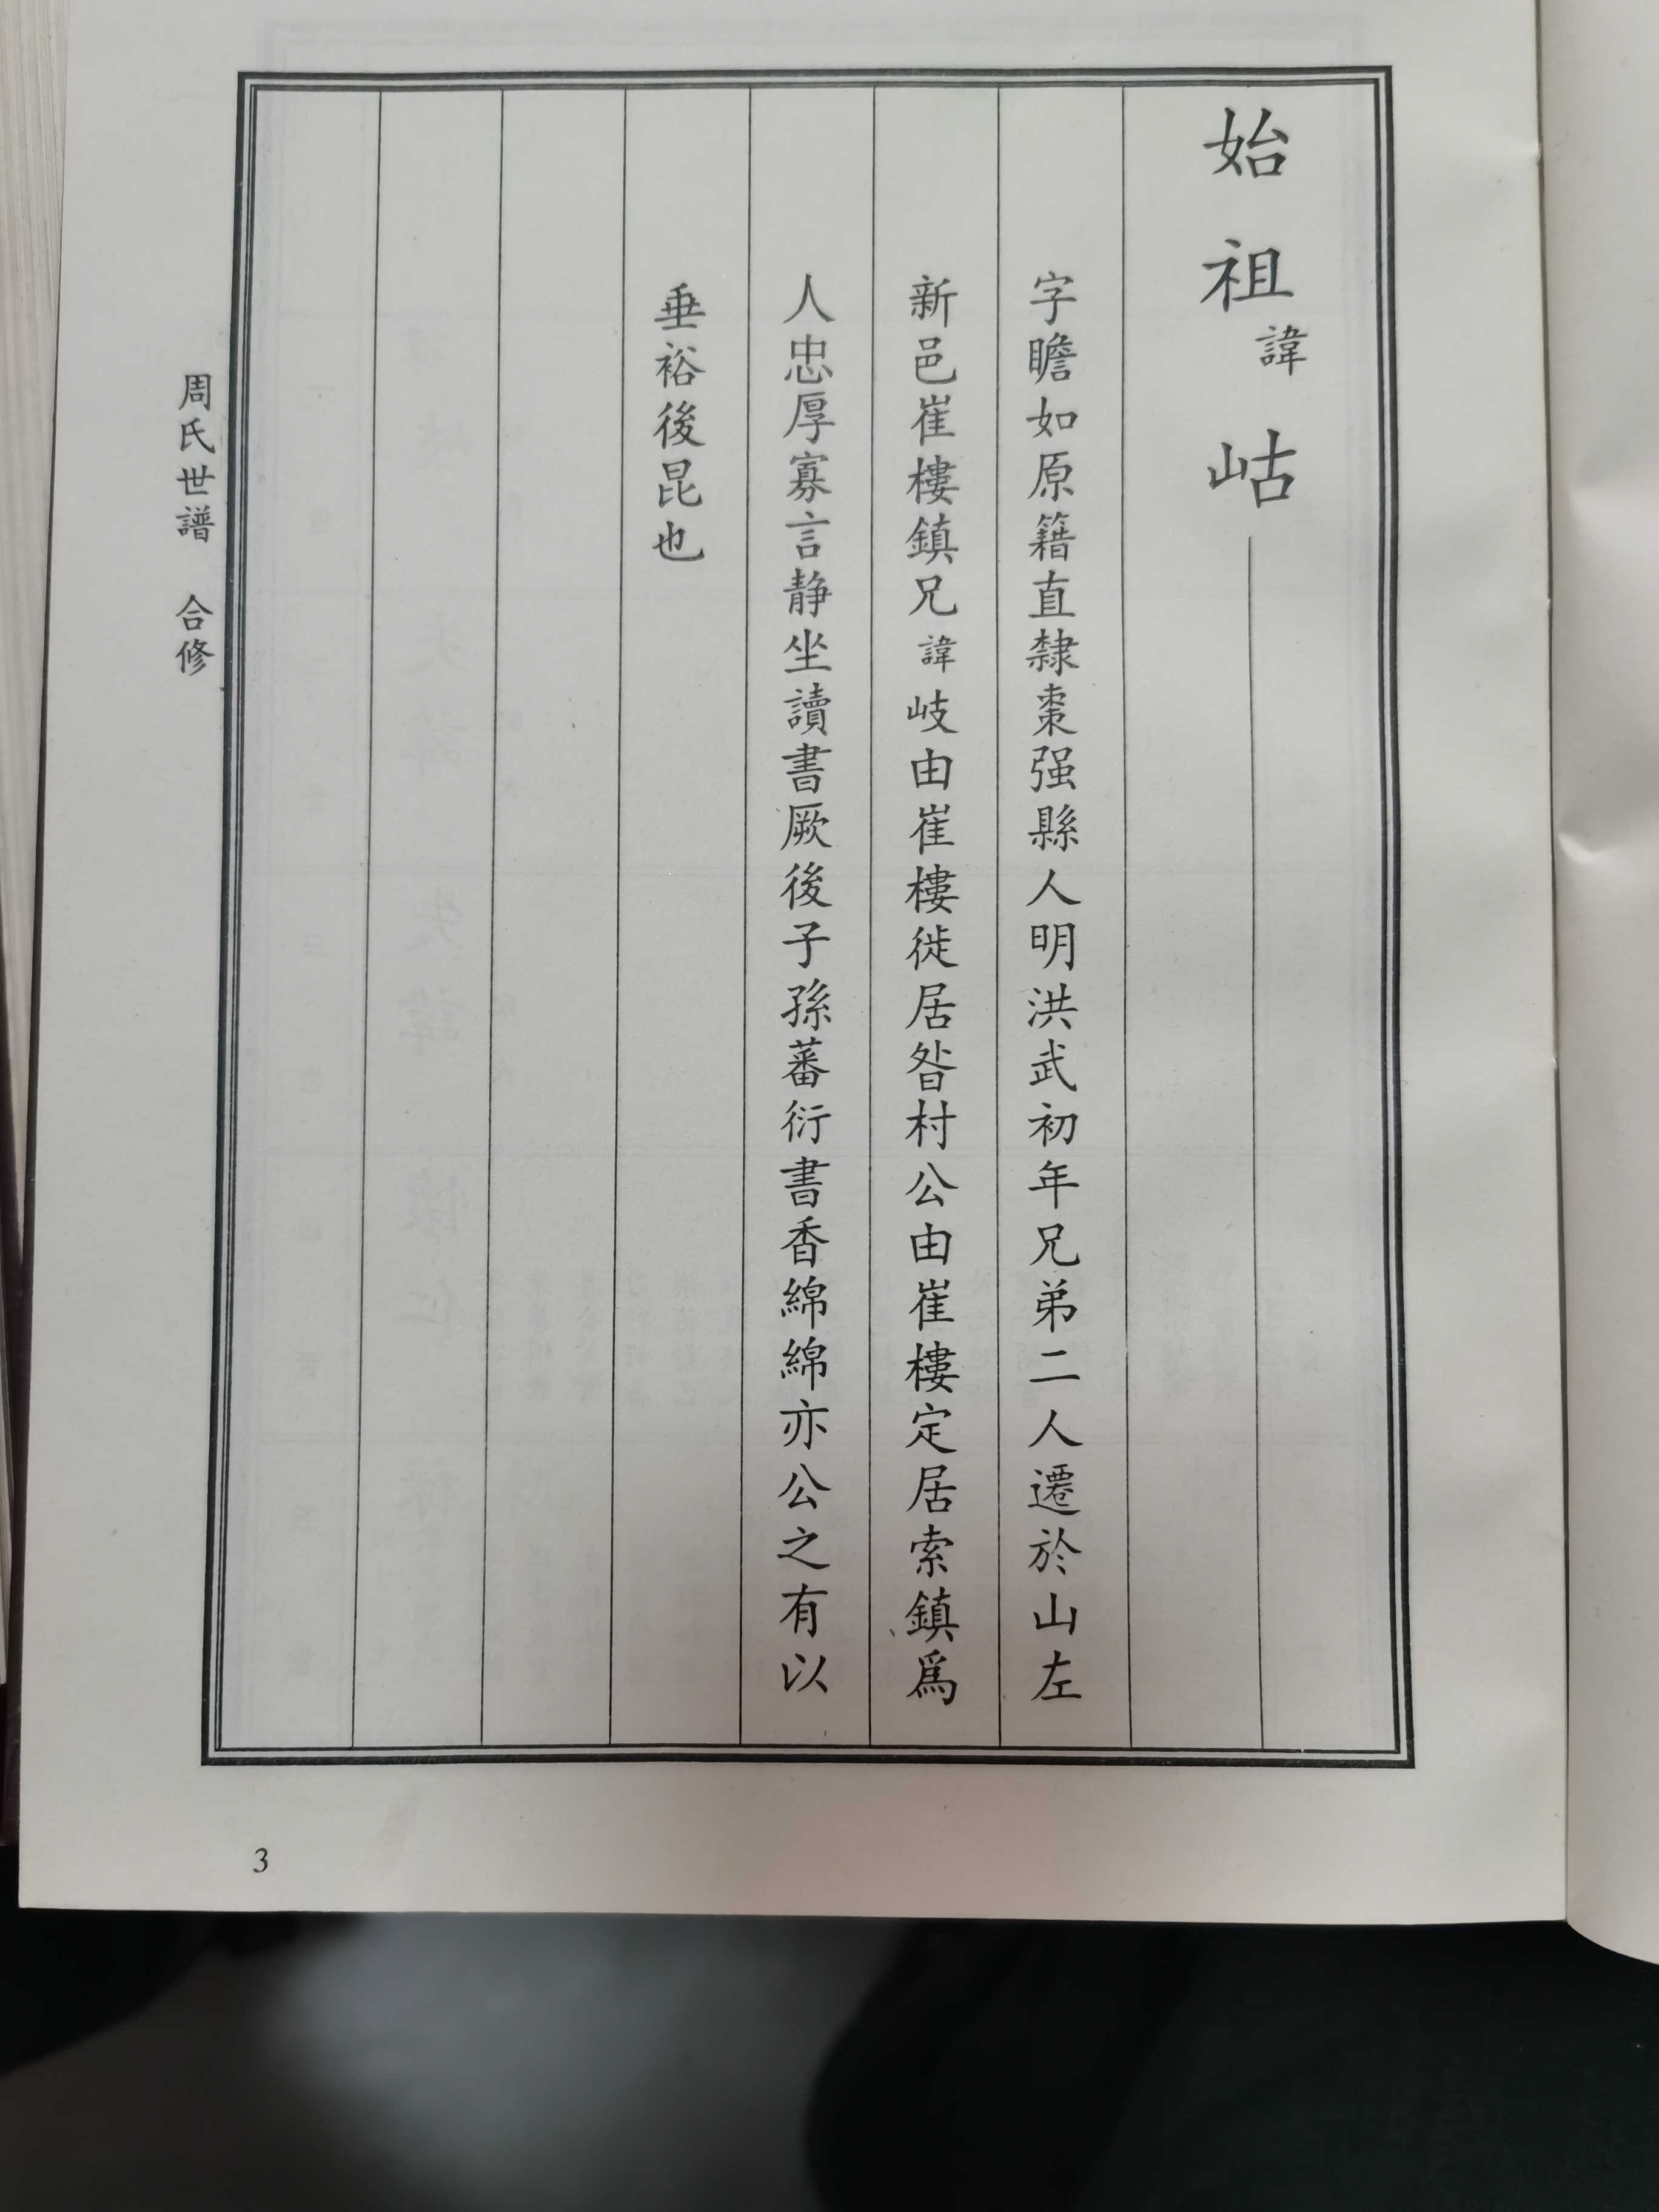 始祖諱岵
字瞻如原籍直隸棗强縣人明洪武初年兄弟二人遷於山左
新邑崔樓鎮兄諱岐由崔樓徙居昝村公由崔樓定居索鎮爲
人忠厚寡言静坐讀書厥後子孫蕃衍書香綿綿亦公之有以
垂裕後昆也
周氏世譜 合修
3